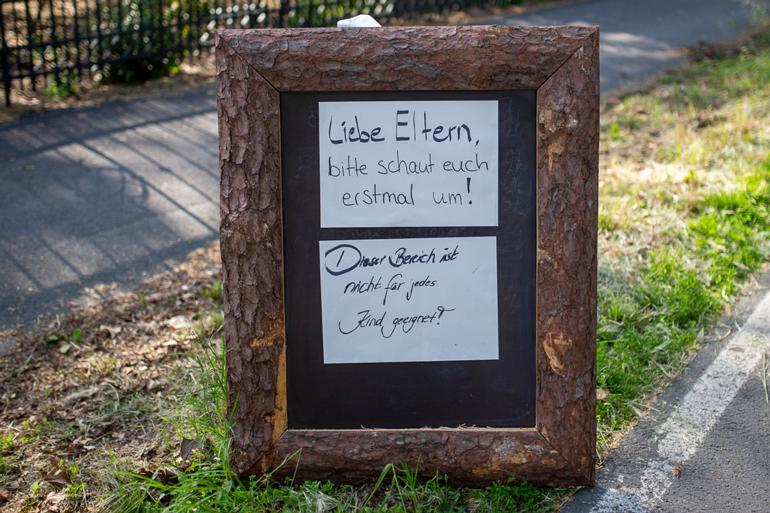 Liebe Eltern,
bitte schaut euch
erstmal um!
Dieser Bereich ist
nicht für jedes
Kind geeignet!